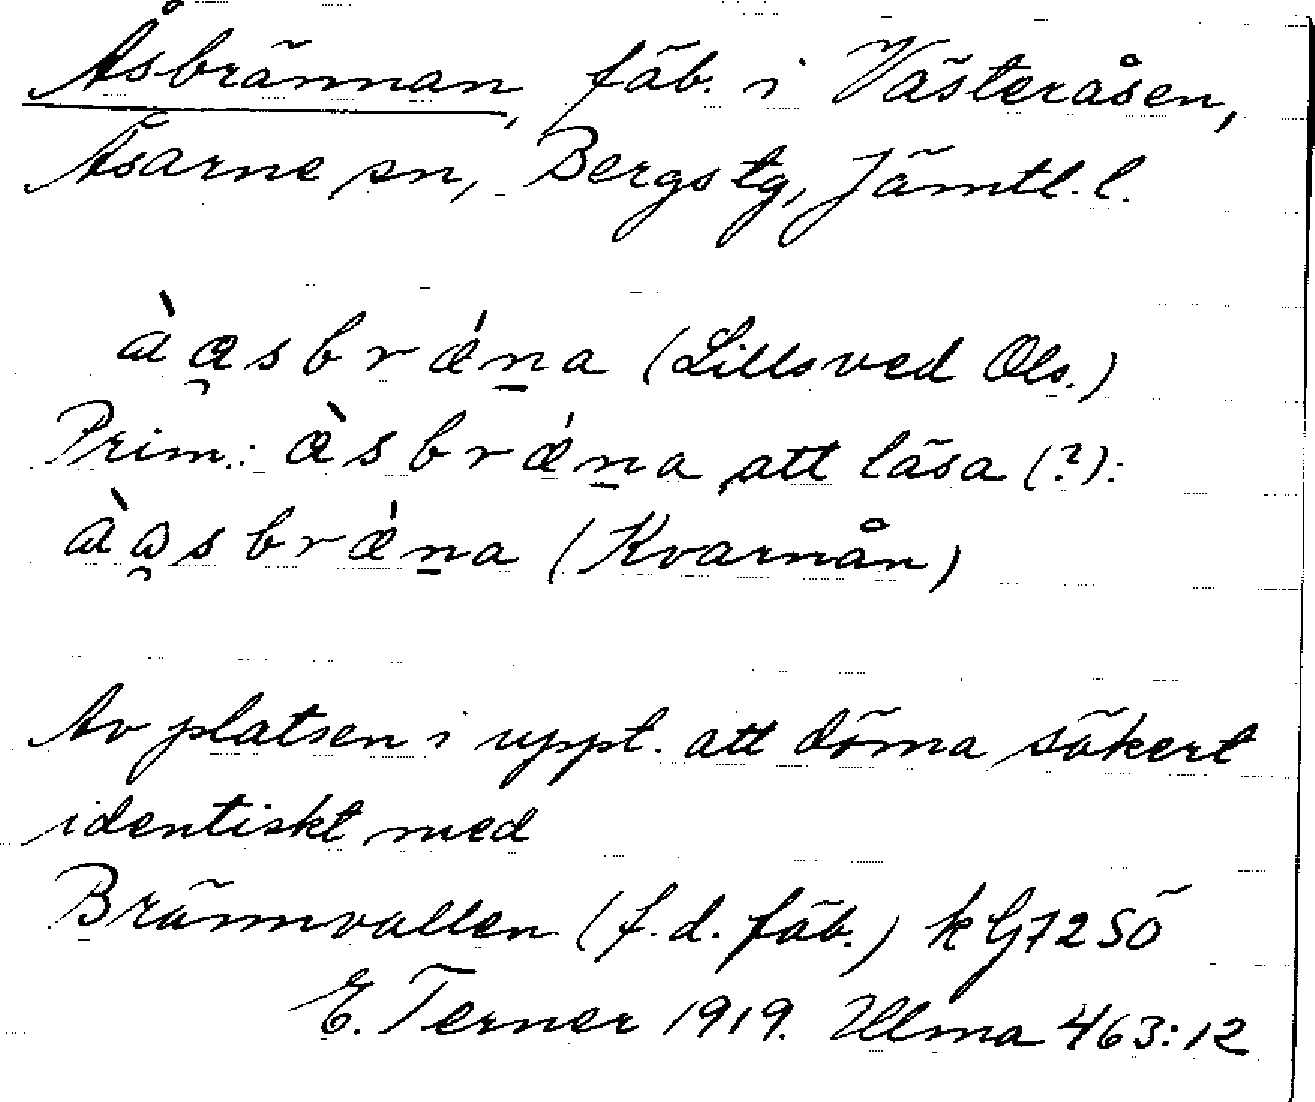 Åsbrännan, fäb. i Västeråsen,
Åsarne sn, Bergs tg, Jämtl. l.
(Lillsved Ols.)
Prim.: att läsa (?):
(Kvarnån)
Av platsen i uppt. att döma säkert
identiskt med
Brännvallen (f.d. fäb.) k G72 SÖ
E. Terner 1919. Ulma 463:12